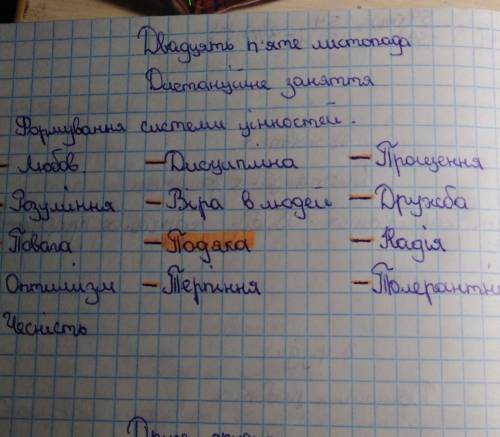 Двадцять п'яте листопада
Дистанційне заняття
Формування системи цінностей.
- Любов. - Дисципліна - Прощення
- Розуміння - Віра в людей - Дружба
- Повага - Подяка - Надія
Оптимізм - Терпіння - Толерантні
Чесність